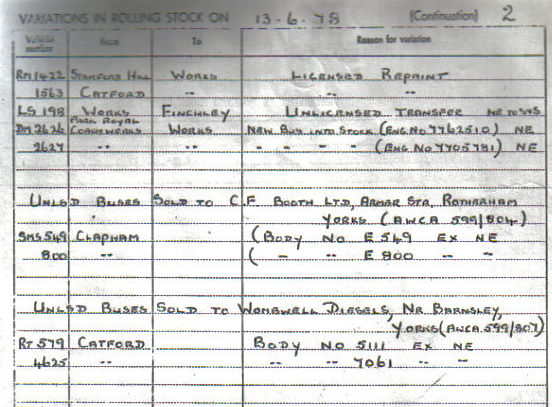 VARIATIONS IN ROLLING STOCK ON 13-6-78 (Continuation) 2
Vehicle number From To Reason for variation
RM1422 STAMFORD HILL WORKS LICENSED REPAINT
1563 CATFORD -- -- --
LS 198 WORKS FINCHLEY UNLICENSED TRANSFER NE TO WS
DM2626 PARK ROYAL COACHWORKS WORKS NEW BUS INTO STOCK (ENG NO 7762510) NE
2627 -- -- - - - - (ENG NO 7705781) NE
UNLSD BUSES SOLD TO C.F BOOTH LTD, ARMAR STR, ROTHERHAM
YORKS (AWCA 599/804)
SMS 549 CLAPHAM (BODY NO E 549 EX NE
800 -- ( -- -- E 800 -- --
UNLSD BUSES SOLD TO WOMBWELL DIESELS, NR BARNSLEY,
YORKS (AWCA 599/807)
RT 579 CATFORD BODY NO 5111 EX NE
4625 -- -- -- 7061 -- --